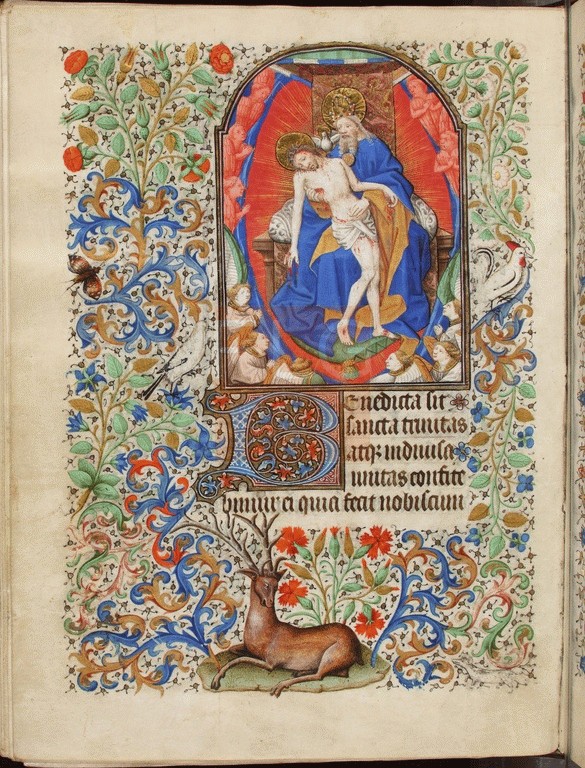 Benedicta sit
sancta trinitas
atq; indivisa
unitas confite
bimur ei quia fecit nobiscum